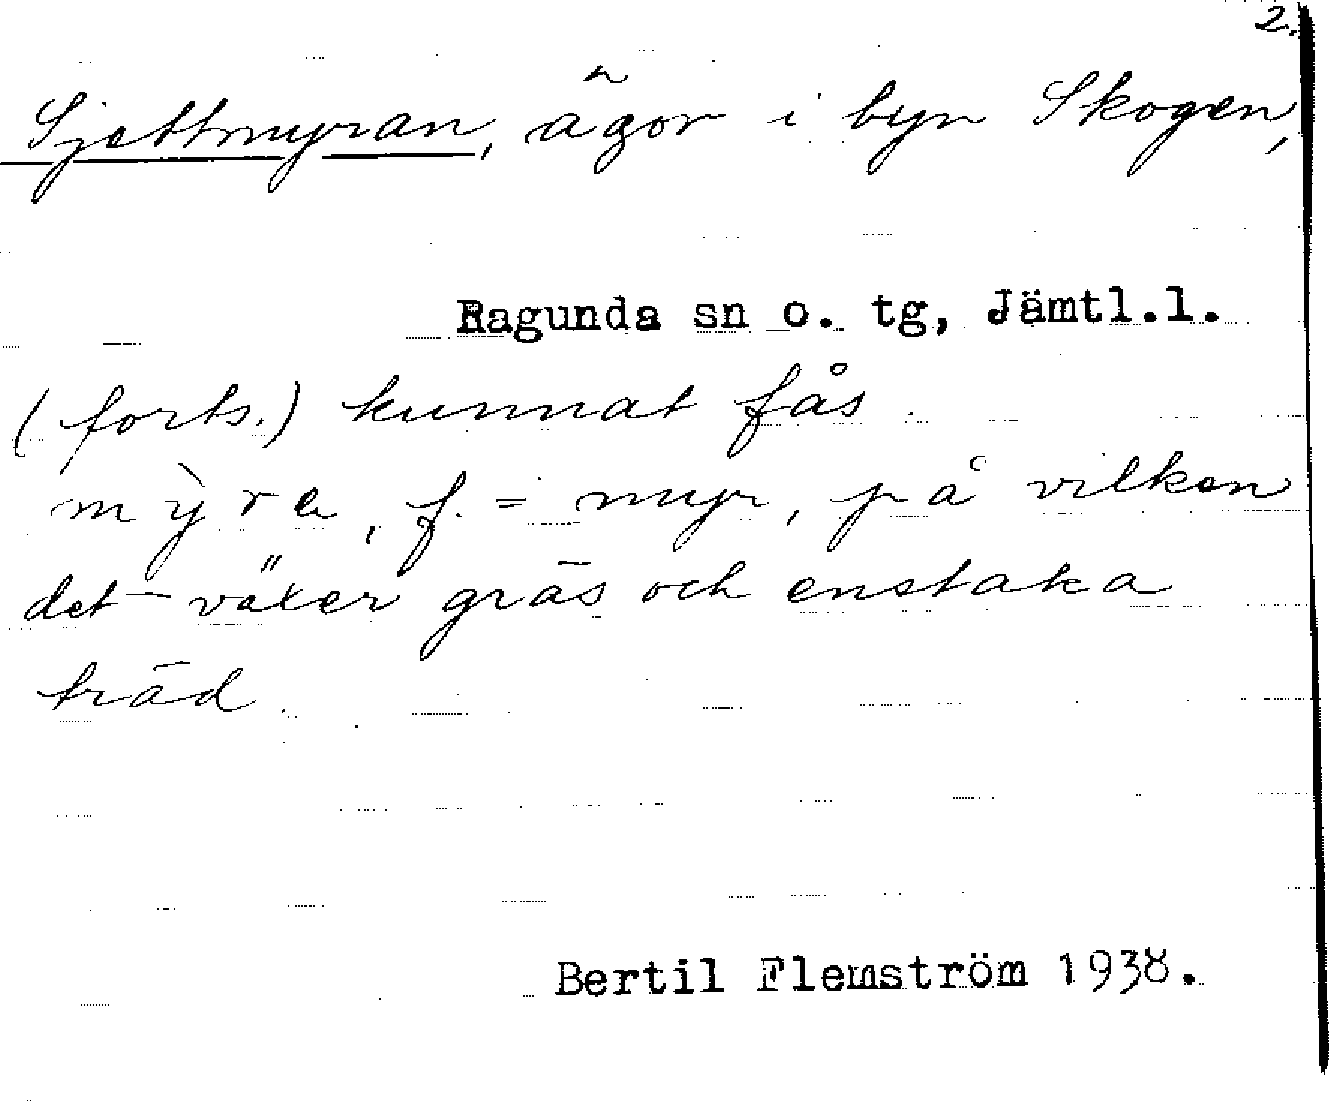 2.
Sjettmyran, ägor i byn Skogen,
Ragunda sn o. tg, Jämtl.l.
(forts.) kunnat fås.
mỳra, f. = myr, på vilken
det växer gräs och enstaka
träd.
Bertil Flemström 1938.